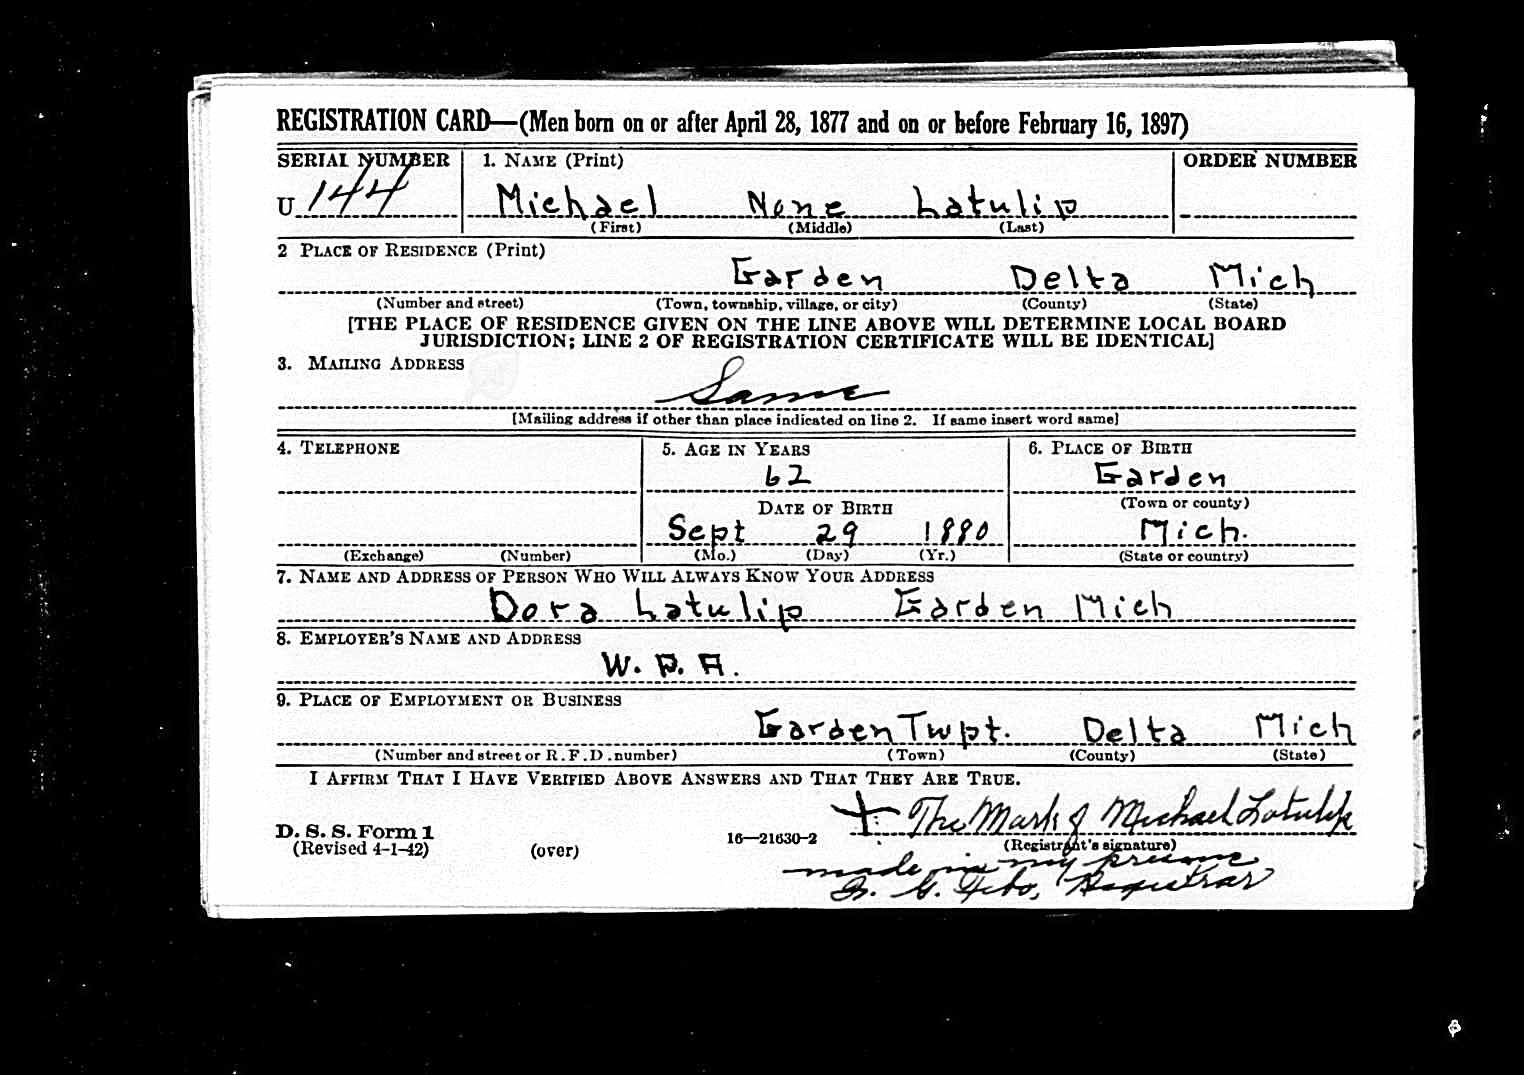 REGISTRATION CARD—(Men born on or after April 28, 1877 and on or before February 16, 1897)
SERIAL NUMBER 1. NAME (Print) ORDER NUMBER
U 144 Michael None Latulip
(First) (Middle) (Last)
2 PLACE OF RESIDENCE (Print)
Garden Delta Mich
(Number and street) (Town, township, village, or city) (County) (State)
[THE PLACE OF RESIDENCE GIVEN ON THE LINE ABOVE WILL DETERMINE LOCAL BOARD
JURISDICTION; LINE 2 OF REGISTRATION CERTIFICATE WILL BE IDENTICAL]
3. MAILING ADDRESS
Same
[Mailing address if other than place indicated on line 2. If same insert word same]
4. TELEPHONE 5. AGE IN YEARS 6. PLACE OF BIRTH
62 Garden
DATE OF BIRTH (Town or county)
Sept 29 1880 Mich.
(Exchange) (Number) (Mo.) (Day) (Yr.) (State or country)
7. NAME AND ADDRESS OF PERSON WHO WILL ALWAYS KNOW YOUR ADDRESS
Dora Latulip Garden Mich
8. EMPLOYER'S NAME AND ADDRESS
W. P. A.
9. PLACE OF EMPLOYMENT OR BUSINESS
Garden Twpt. Delta Mich
(Number and street or R.F.D. number) (Town) (County) (State)
I AFFIRM THAT I HAVE VERIFIED ABOVE ANSWERS AND THAT THEY ARE TRUE.
The Mark of Michael Latulip
D. S. S. Form 1 16—21630-2 (Registrant's signature)
(Revised 4-1-42) (over)
made in my presence
G. Registrar